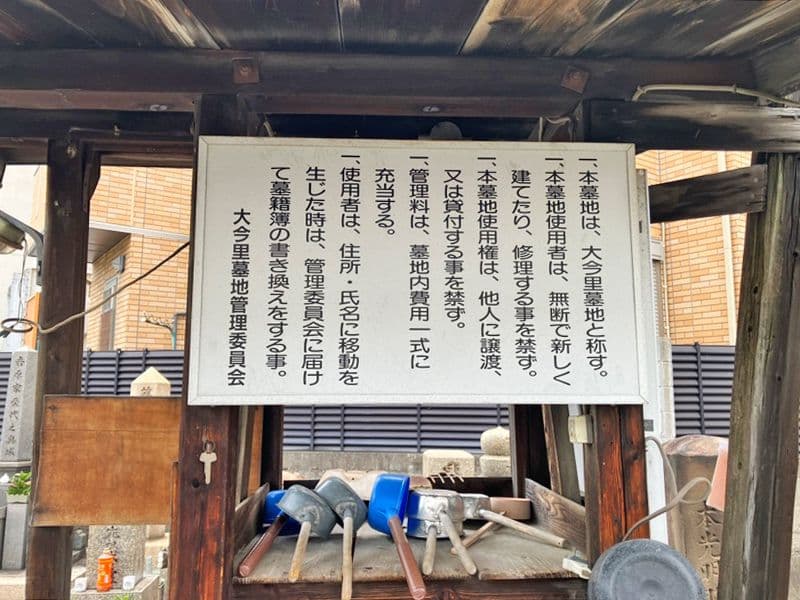 一、本墓地は、大今里墓地と称す。
一、本墓地使用者は、無断で新しく
建てたり、修理する事を禁ず。
一、本墓地使用権は、他人に譲渡、
又は貸付する事を禁ず。
一、管理料は、墓地内費用一式に
充当する。
一、使用者は、住所・氏名に移動を
生じた時は、管理委員会に届け
て墓籍簿の書き換えをする事。
大今里墓地管理委員会